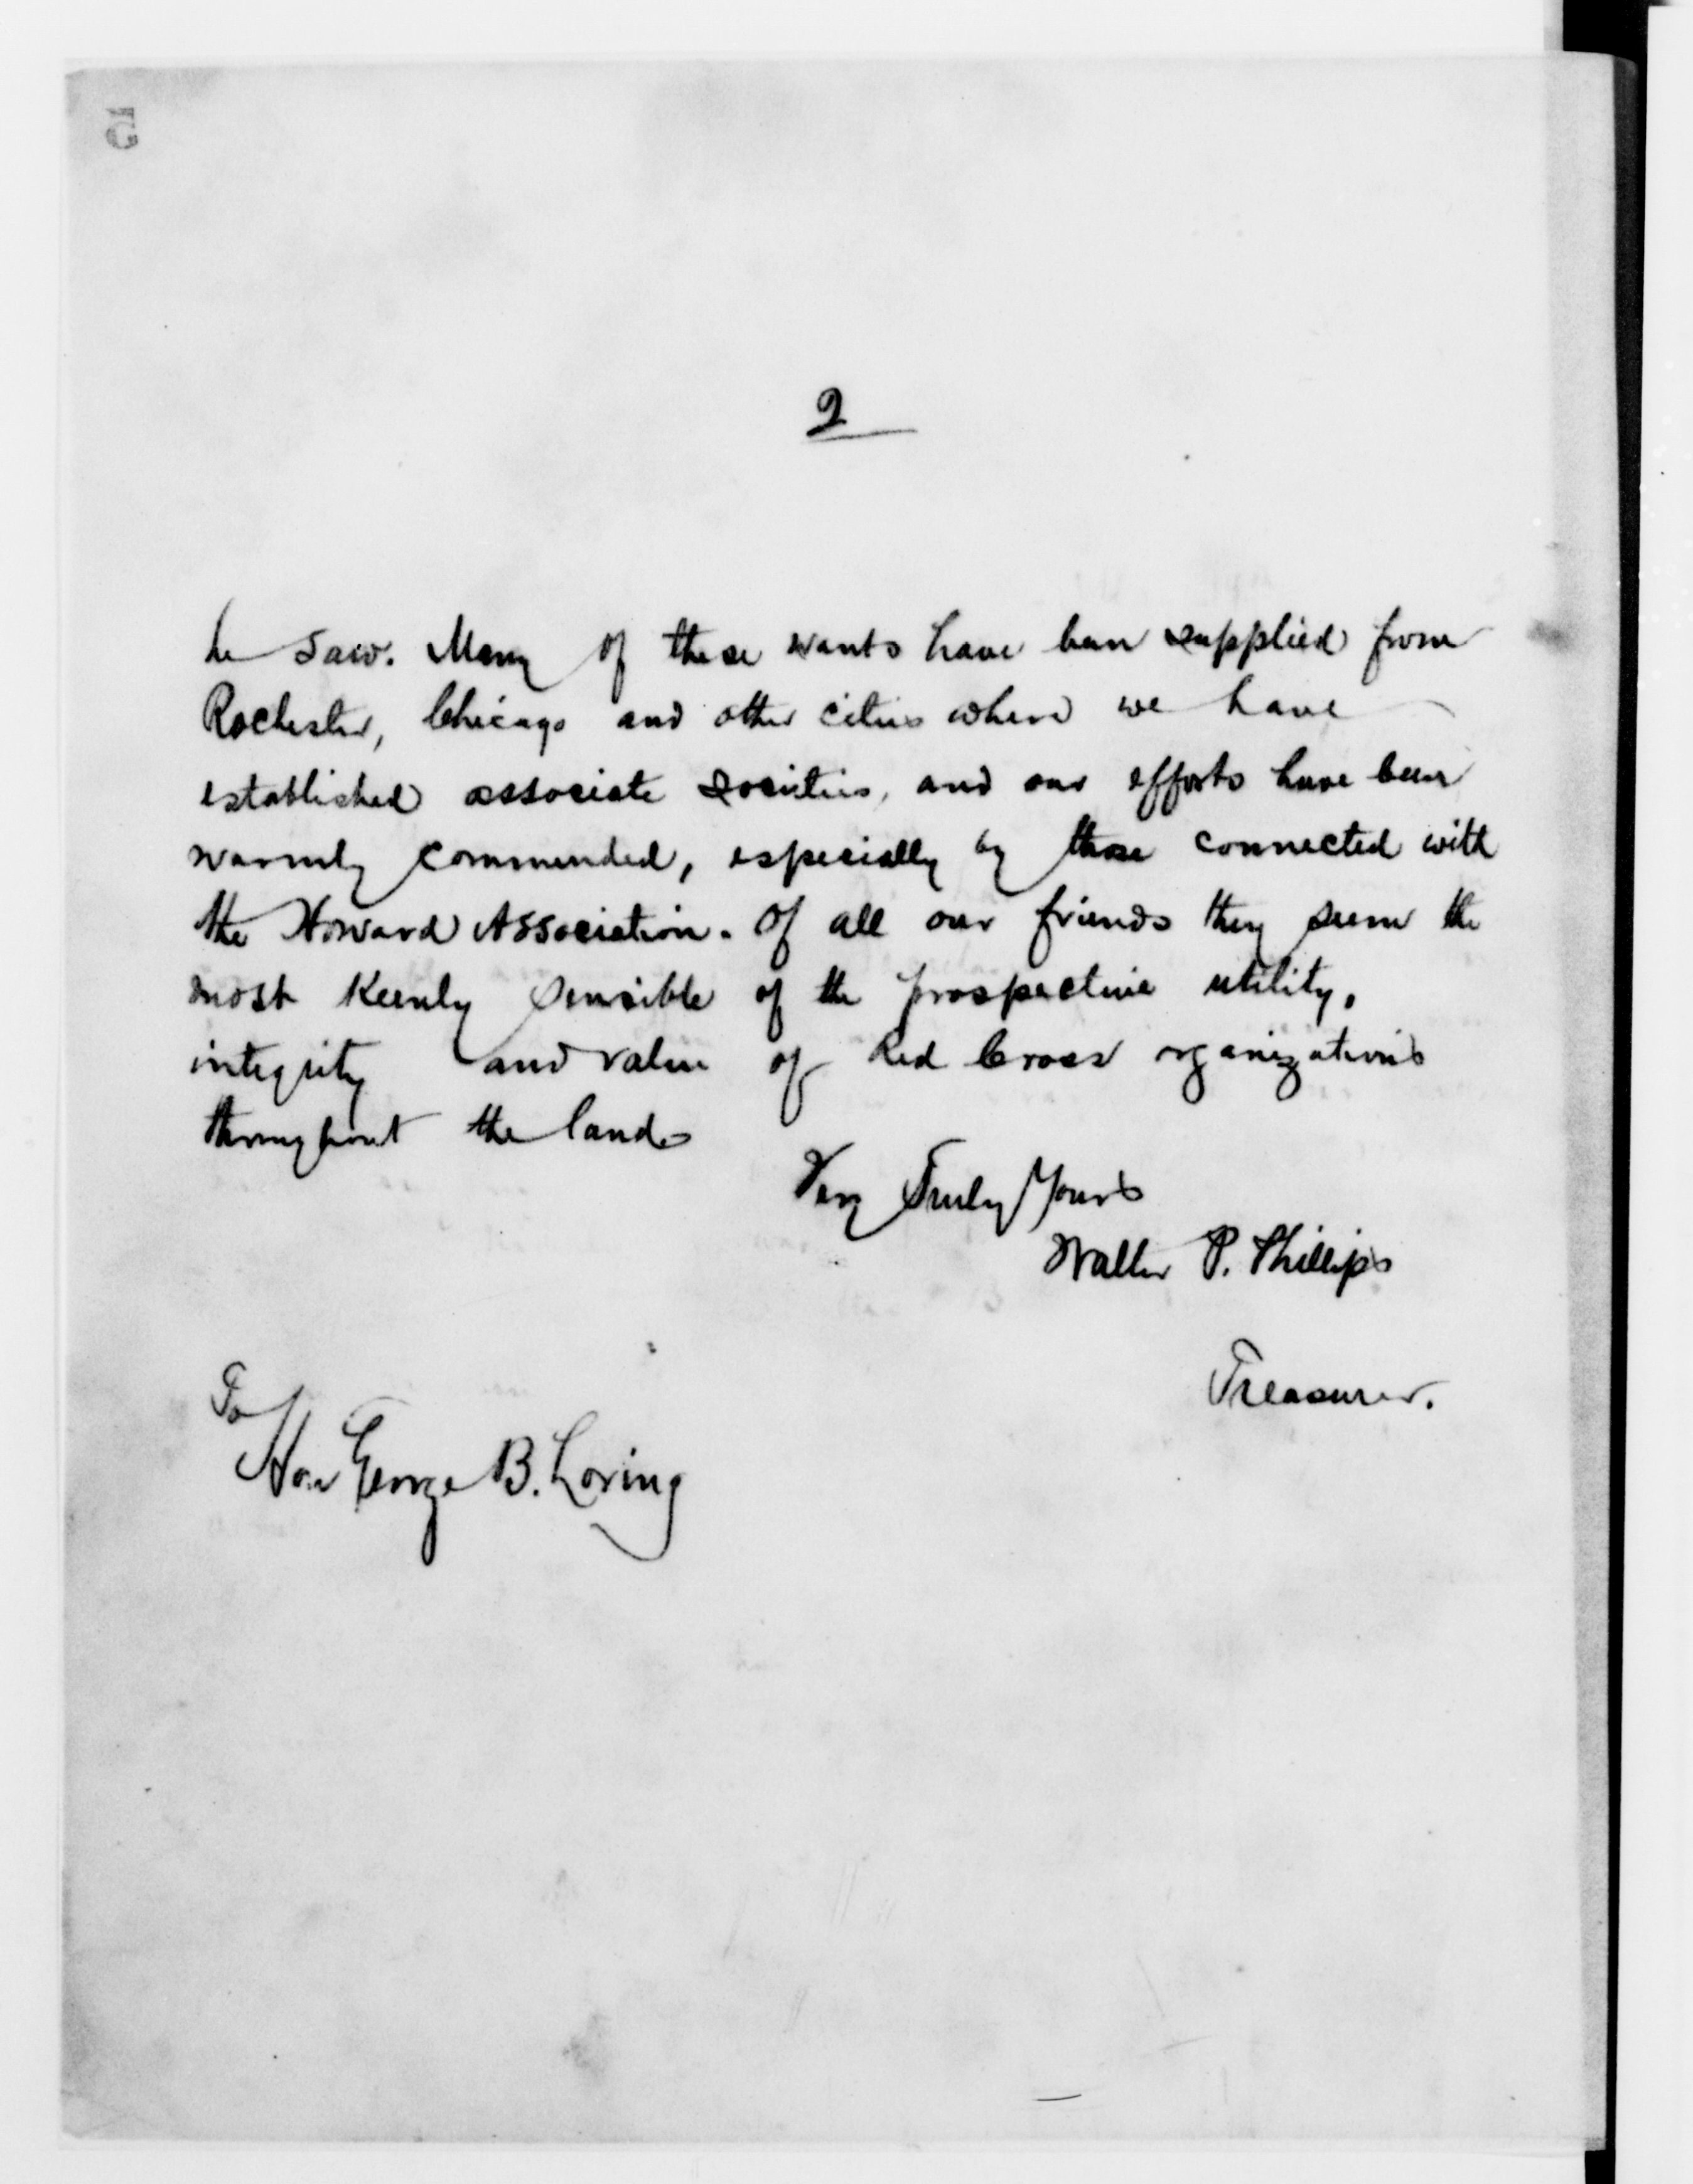 5
2
he saw. Many of these wants have been supplied from
Rochester, Chicago and other cities where we have
established associate societies, and our efforts have been
warmly commended, especially by those connected with
the Howard Association. Of all our friends they seem the
most keenly sensible of the prospective utility,
integrity and value of Red Cross organizations
throughout the land.
Very Truly Yours
Walter P. Phillips
Treasurer.
To
Hon George B. Loring